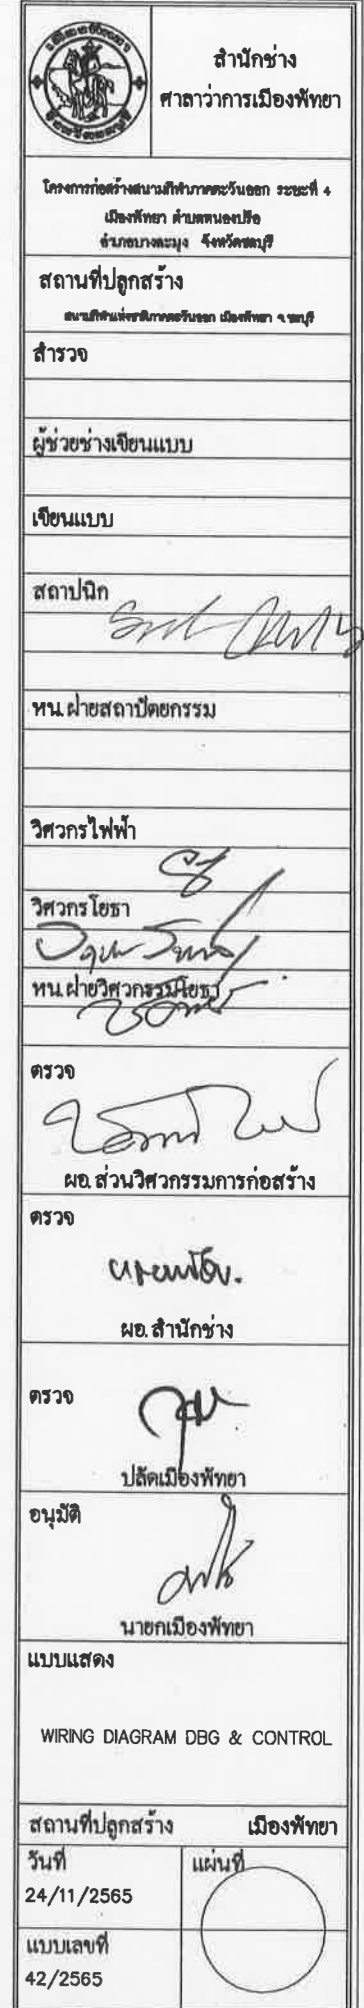 สำนักช่าง
ศาลาว่าการเมืองพัทยา
โครงการก่อสร้างสนามกีฬาภาคตะวันออก ระยะที่ 4
เมืองพัทยา ตำบลหนองปรือ
อำเภอบางละมุง จังหวัดชลบุรี
สถานที่ปลูกสร้าง
สนามกีฬาแห่งชาติภาคตะวันออก เมืองพัทยา จ.ชลบุรี
สำรวจ
ผู้ช่วยช่างเขียนแบบ
เขียนแบบ
สถาปนิก
หน.ฝ่ายสถาปัตยกรรม
วิศวกรไฟฟ้า
วิศวกรโยธา
หน.ฝ่ายวิศวกรรมโยธา
ตรวจ
ผอ.ส่วนวิศวกรรมการก่อสร้าง
ตรวจ
ผอ.สำนักช่าง
ตรวจ
ปลัดเมืองพัทยา
อนุมัติ
นายกเมืองพัทยา
แบบแสดง
WIRING DIAGRAM DBG & CONTROL
สถานที่ปลูกสร้าง เมืองพัทยา
วันที่ แผ่นที่
24/11/2565
แบบเลขที่
42/2565